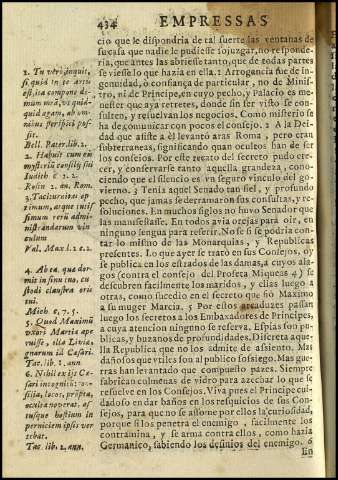 434 EMPRESSAS
cio que le dispondria de tal suerte las ventanas de
su casa que nadie le pudiesse sojuzgar, no responde-
ria, que antes las abriesse tanto, que de todas partes
se viesse lo que hazia en ella. 1 Arrogancia fue de in-
genuidad, ò confiança de particular, no de Minis-
tro, ni de Principe, en cuyo pecho, y Palacio es me-
nester que aya retretes, donde sin ser visto se consul-
ten, y resuelvan los negocios. Como misterio se
ha de comunicar con pocos el consejo. 2 A la Dei-
dad que assiste a èl levantò aras Roma, pero eran
subterraneas, significando quan ocultos han de ser
los consejos. Por este recato del secreto pudo cre-
cer, y conservarse tanto aquella grandeza, cono-
ciendo que el silencio es un seguro vinculo del go-
vierno. 3 Tenia aquel Senado tan fiel, y profundo
pecho, que jamas se derramaron sus consultas, y re-
soluciones. En muchos siglos no huvo Senador que
las manifestasse. En todos avia orejas para oir, en
ninguno lengua para referir. No se si se podria con-
tar lo mismo de las Monarquias, y Republicas
presentes. Lo que ayer se tratò en sus Consejos, oy
se publica en los estrados de las damas, a cuyos ala-
gos (contra el consejo del Profeta Miqueas 4) se
descubren facilmente los maridos, y ellas luego a
otras, como sucediò en el secreto que fiò Maximo
a su muger Marcia. 5 Por ellos arcaduzes passan
luego los secretos a los Embaxadores de Principes,
a cuya atencion ninguno se reserva. Espias son pu-
blicas, y buzanos de profundidades. Discreta aque-
lla Republica que no los admite de assiento. Mas
daños os que utiles son al publico sossiego. Mas gue-
rras han levantado que compuesto pazes. Siempre
fabrican colmenas de vidro para azechar lo que se
resuelve en los Consejos. Viva pues el Principe cui-
dadoso en dar baños en los resquicios de sus Con-
sejos, para que no se assome por ellos la curiosidad,
porque si los penetra el enemigo, facilmente los
contramina, y se arma contra ellos, como hazia
Germanico, sabiendo los desinios del enemigo. 6
En
1. Tu verò, inquit,
si quid in te artis
est, ita compone do-
mum meā, ut quid-
quid agam, ab om-
nibus perspici pos-
sit.
Bell. Pater. lib. 2.
2. Habuit cum eis
mysterium consilij sui
Judith c 2. 2.
Rosin 2. an. Rom.
3. Taciturnitas op-
timum, atque tutis-
simum rerū admi-
nistrandarum vin-
culum
Val. Max l. 2 c. 2.
4. Ab ea, quæ dor-
mit in sinu tuo, cu-
stodi claustra oris
tui.
Mich c. 7. 5.
5. Quod Maximus
uxori Marciæ ape-
ruisse, illa Liviæ,
gnarum id Cæsari.
Tac. lib. 1. ann.
6. Nihil ex ijs Cæ-
sari incogniti: con-
silia, locos, prōpta,
occulta noverat, as-
tusque hostium in
perniciem ipsis ver-
tebat.
Tac. lib. 2. ann.